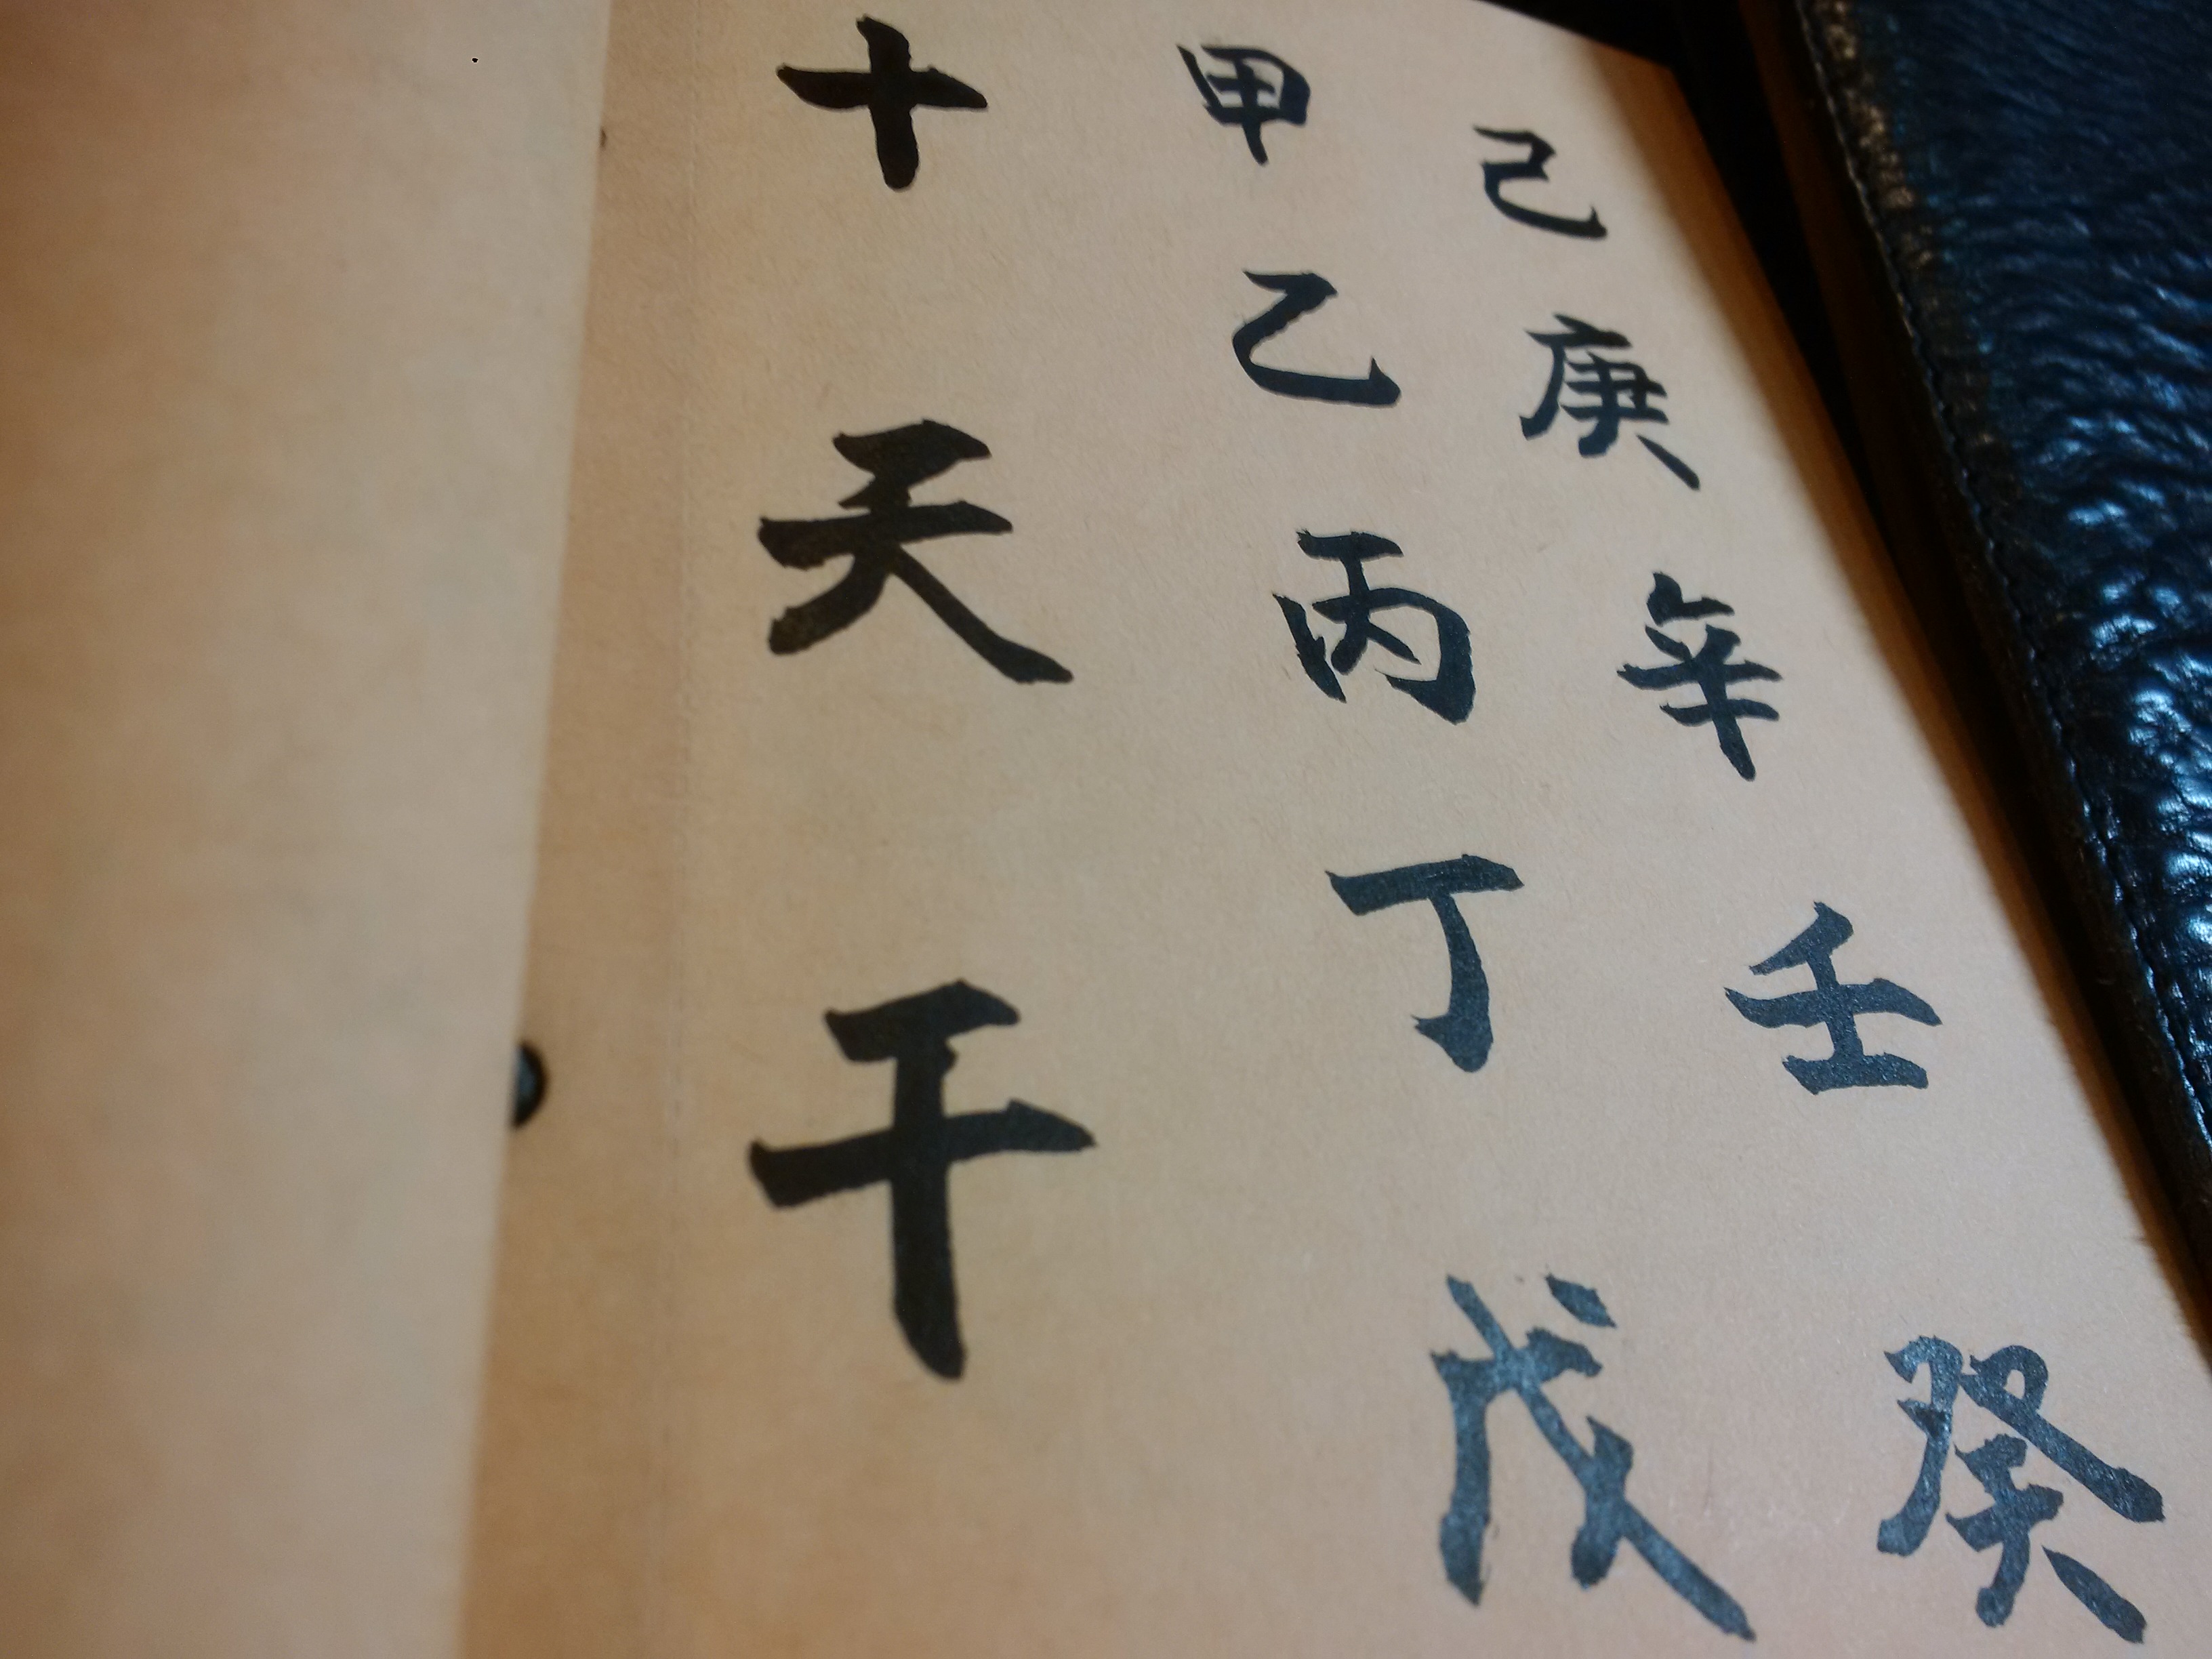 十天干
甲乙丙丁戊
己庚辛壬癸